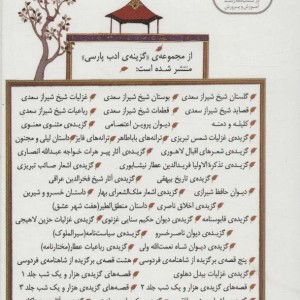 از مجموعه‌ی «گزینه‌ی ادب پارسی»
منتشر شده است:
گلستان شیخ شیراز سعدی بوستان شیخ شیراز سعدی غزلیات شیخ شیراز سعدی
قصاید شیخ شیراز سعدی قطعات شیخ شیراز سعدی رباعیات شیخ شیراز سعدی
کلیله و دمنه دیوان پروین اعتصامی گزیده‌ی مثنوی معنوی
گزیده‌ی غزلیات شمس تبریزی ترانه‌های باباطاهر ترانه‌های فایز داستان لیلی و مجنون
گزیده‌ی شعرهای اقبال لاهوری گزیده‌ی آثار پیر هرات خواجه عبدالله انصاری
گزیده‌ی تذکرةالاولیا فریدالدین عطار نیشابوری گزیده‌ی اشعار صائب تبریزی
گزیده‌ی تاریخ بیهقی گزیده‌ی آثار شیخ فخرالدین عراقی
دیوان حافظ شیرازی گزیده‌ی اشعار ملک‌الشعرای بهار داستان خسرو و شیرین
گزیده‌ی اخلاق ناصری داستان منطق‌الطیر(هفت شهر عشق)
گزیده‌ی قابوسنامه گزیده‌ی دیوان حکیم سنایی غزنوی گزیده‌ی غزلیات حزین لاهیجی
گزیده‌ی دیوان ناصرخسرو گزیده‌ی سیاست‌نامه(سیرالملوک)
گزیده‌ی دیوان شاه نعمت‌الله ولی گزیده‌ی رباعیات عطار(مختارنامه)
پنج قصه‌ی برگزیده از شاهنامه‌ی فردوسی هشت قصه‌ی برگزیده از شاهنامه‌ی فردوسی
گزیده‌ی غزلیات بیدل دهلوی قصه‌های گزیده‌ی هزار و یک شب جلد ۱
قصه‌های گزیده‌ی هزار و یک شب جلد ۲ قصه‌های گزیده‌ی هزار و یک شب جلد ۳